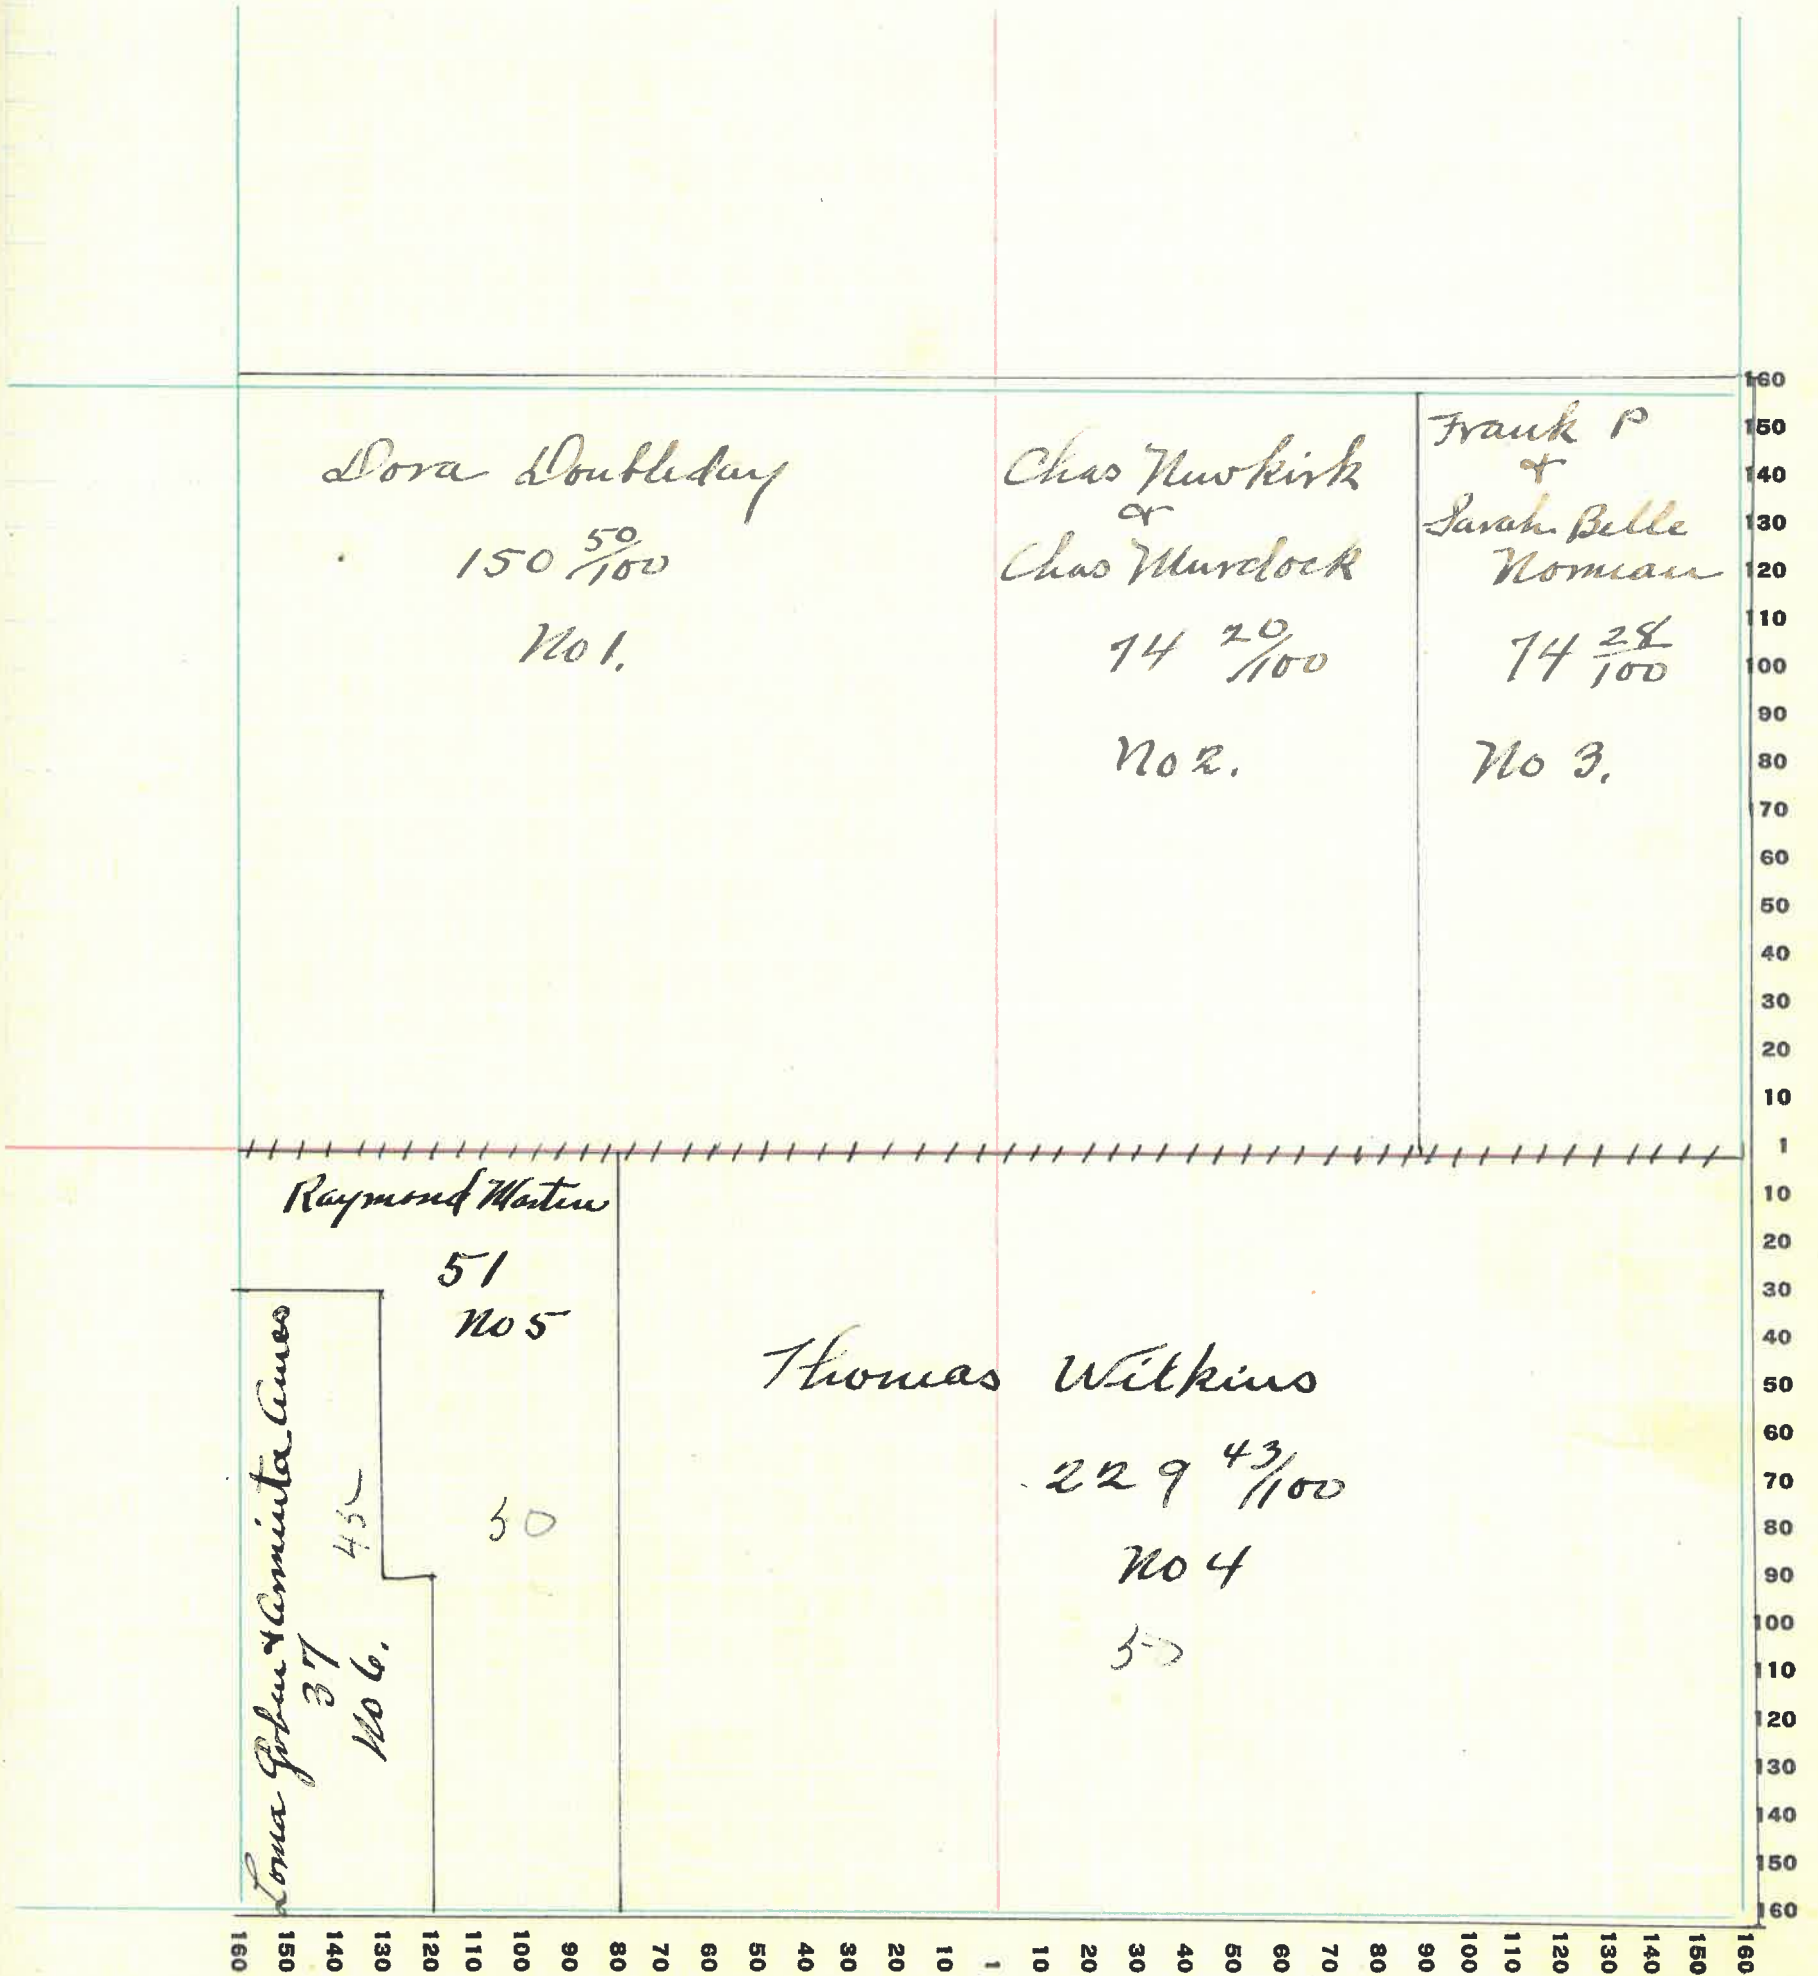 Dora Doubleday
150 50/100
No 1.
Chas Newkirk
&
Chas Murdock
74 20/100
No 2.
Frank P
&
Sarah Belle
Norman
74 28/100
No 3.
160
150
140
130
120
110
100
90
80
70
60
50
40
30
20
10
1
10
20
30
40
50
60
70
80
90
100
110
120
130
140
150
160
Raymond Martin
51
No 5
50
Thomas Wilkins
229 43/100
No 4
50
& Aminta Ames
45
37
No 6.
160 150 140 130 120 110 100 90 80 70 60 50 40 30 20 10 1 10 20 30 40 50 60 70 80 90 100 110 120 130 140 150 160